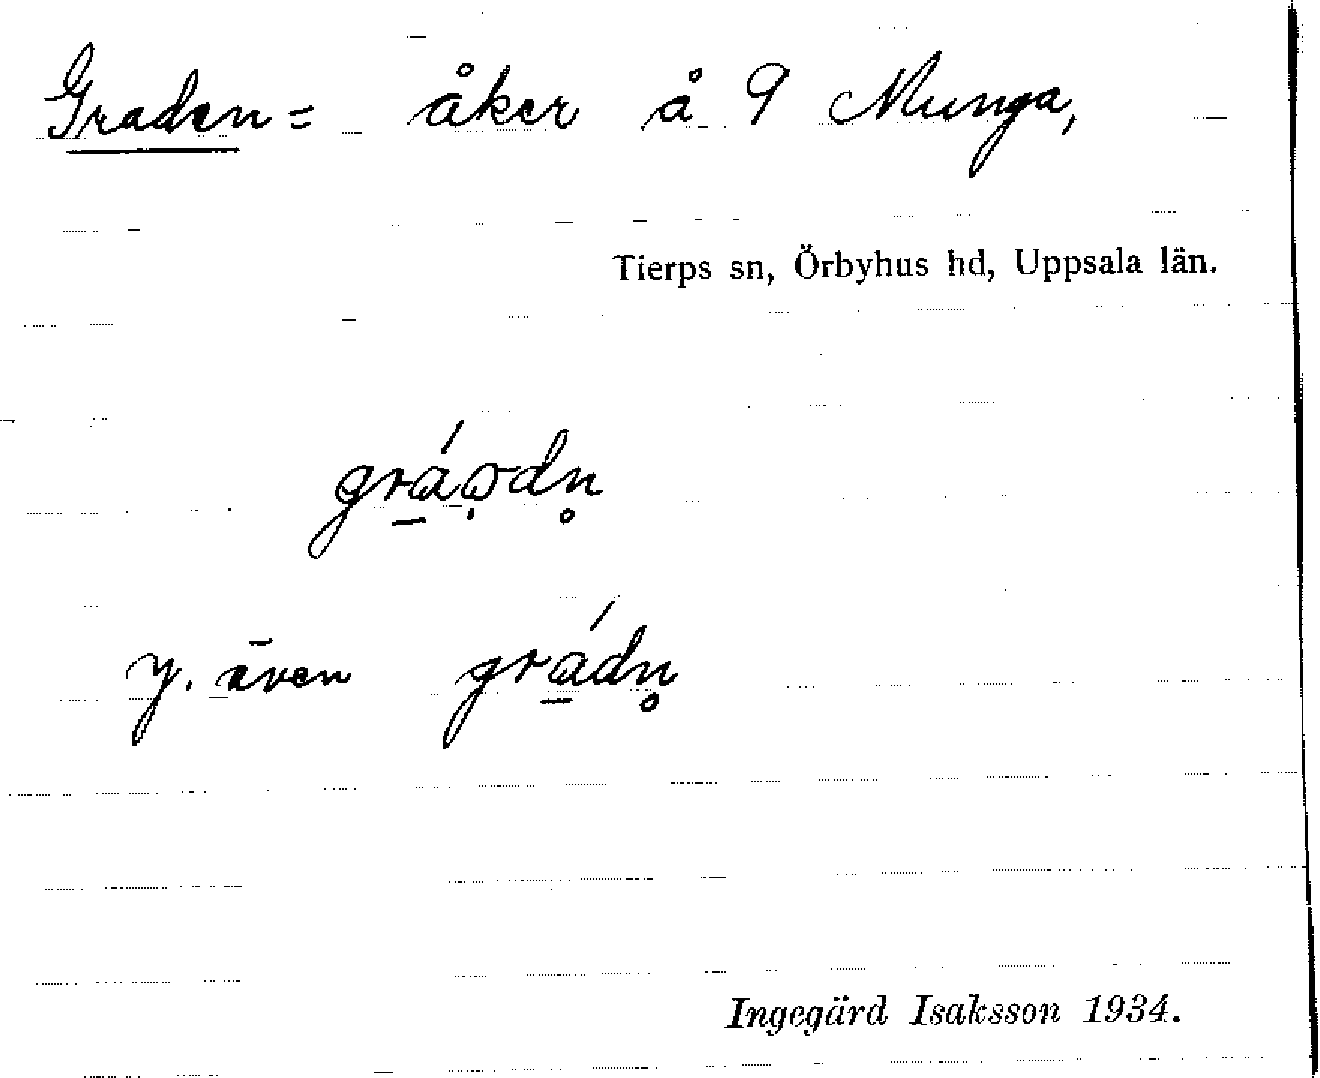 Graden = åker å 9 Munga,
Tierps sn, Örbyhus hd, Uppsala län.
y. även
Ingegärd Isaksson 1934.